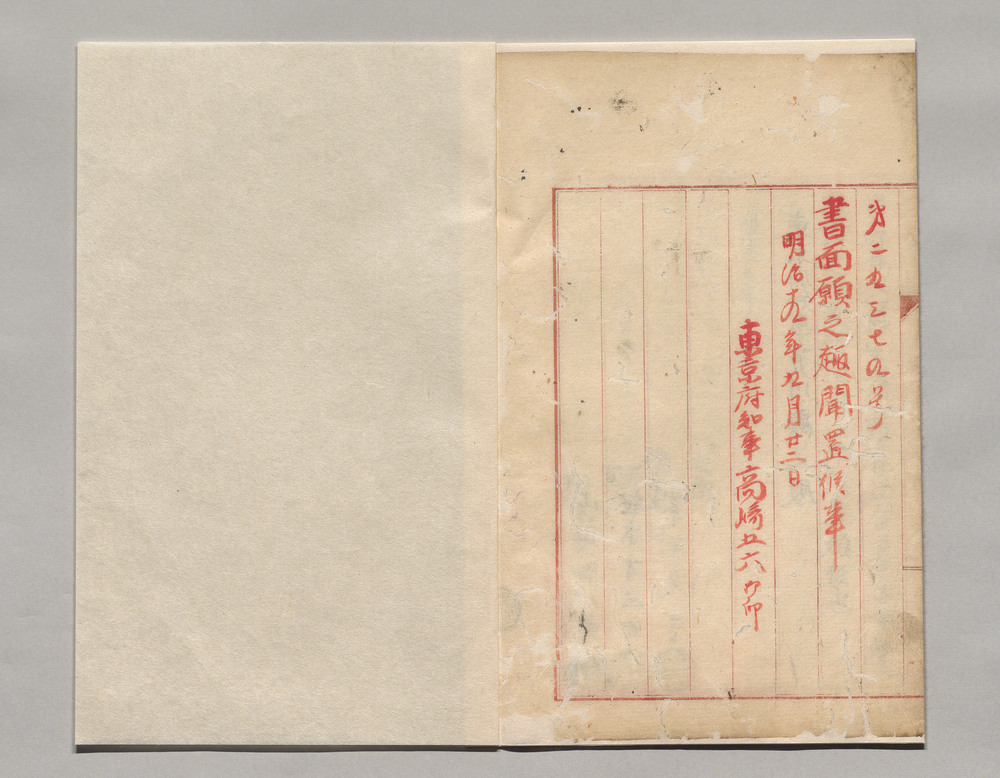 第二五三七九号
書面願之趣聞置候事
明治十九年九月廿二日
東京府知事高崎五六